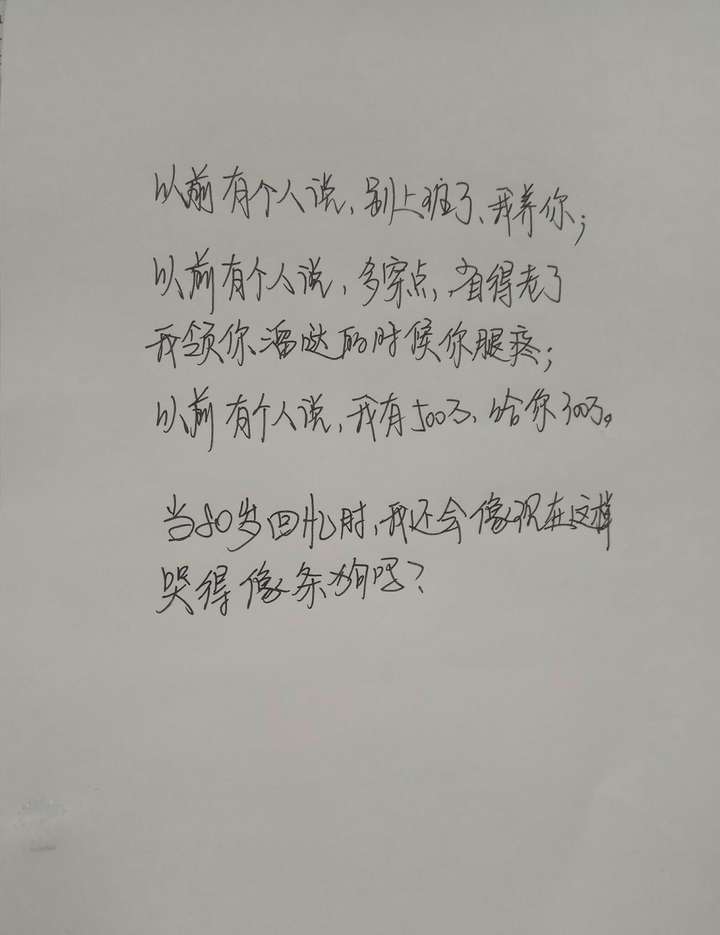 以前有个人说，别上班了、我养你；
以前有个人说，多穿点，省得老了
我领你溜哒的时候你腿疼；
以前有个人说，我有500万、给你300万。
当80岁回忆时，我还会像现在这样
哭得像条狗吗？